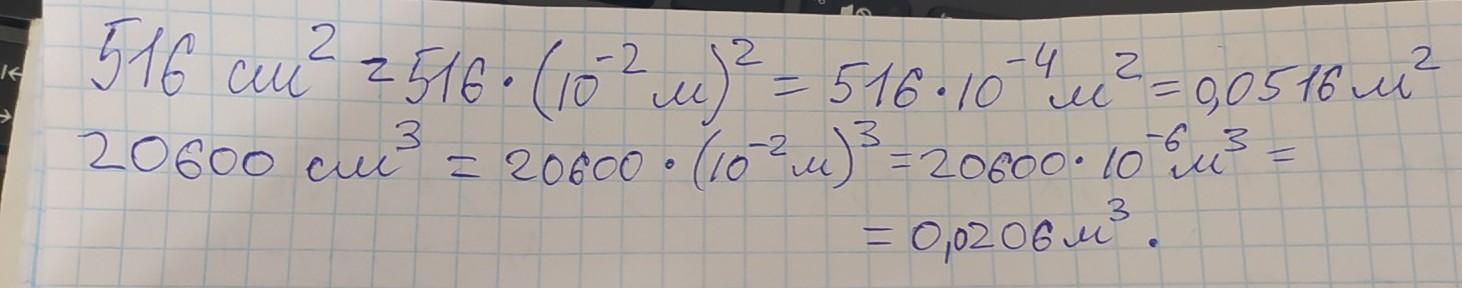 516 см² = 516·(10⁻² м)² = 516·10⁻⁴ м² = 0,0516 м²
20600 см³ = 20600·(10⁻² м)³ = 20600·10⁻⁶ м³ =
= 0,0206 м³.